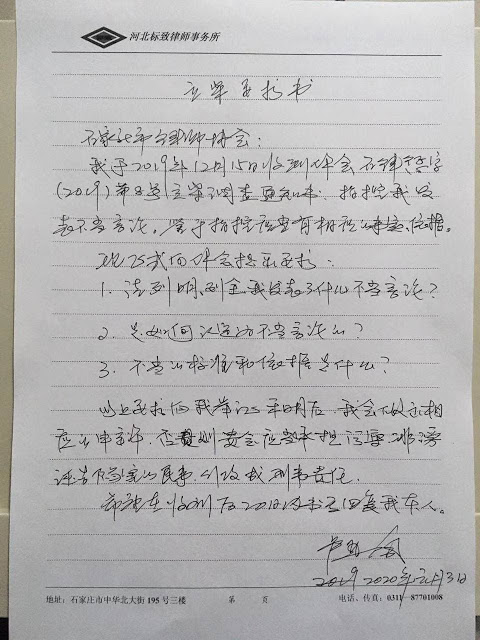 河北标致律师事务所
立案要求书
石家庄市律师协会：
我于2019年12月15日收到律会石律字
(2019)第8号立案调查通知书，指控我发
表不当言论。鉴于指控应当有相应的事实、依据。
现正式向律会提出要求：
1、请列明、列全我发表了什么不当言论？
2、是如何认定为不当言论的？
3、不当的标准和依据是什么？
以上要求向我举证、声明后，我会做出相
应的申辩。否则贵会应当承担污蔑、诽谤
诬告的民事、行政或刑事责任。
希望在收到后20日内书面回复我本人。
2019 2020年元月3日
地址：石家庄市中华北大街195号三楼 第 页 电话、传真：0311—87701008